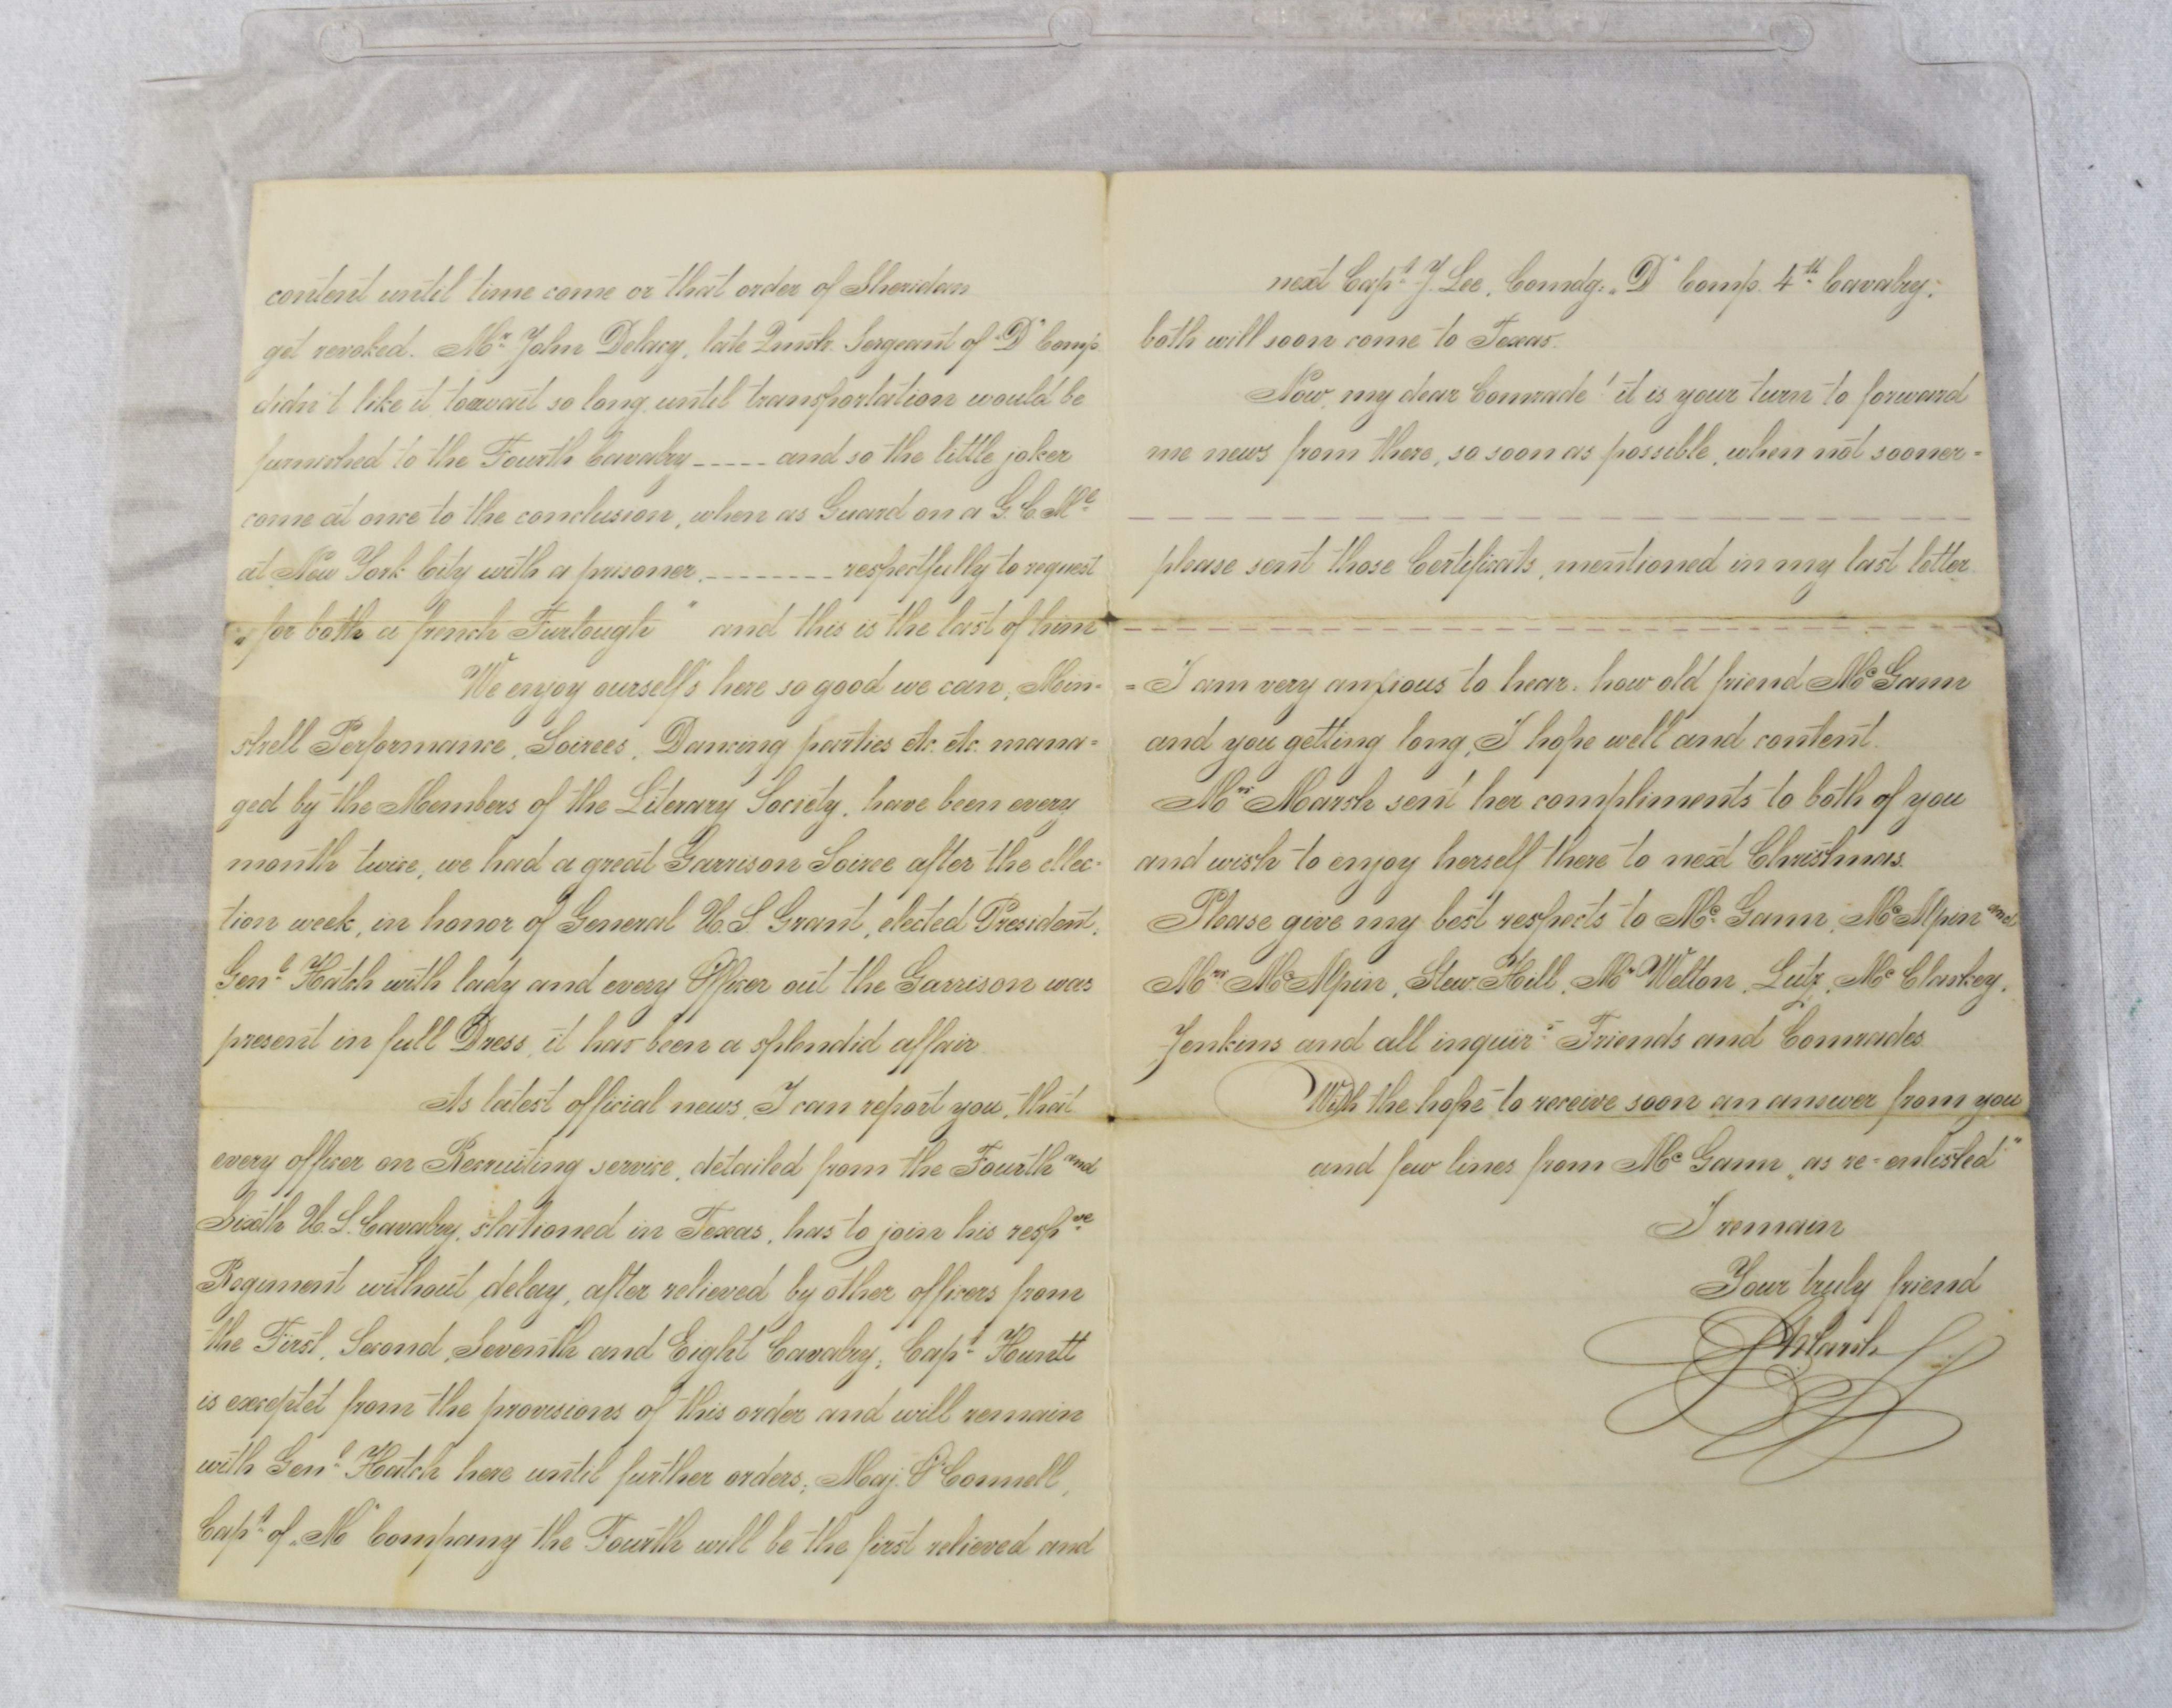 content until time come or that order of Sheridan
get revoked. Mr. John Delacy, late Qmstr. Sergeant of „D" Comp.
didn't like it, to wait so long, until transportation would be
furnished to the Fourth Cavalry _____ and so the little joker
come at once to the conclusion, when as Guard on a G.C.Ml.
at New York City with a prisoner, ________ respectfully to request
„for both a french Furlough" and this is the last of him
We enjoy ourself's here so good we can, Min-
strell Performance, Soirees, Dancing parties etc. etc. mana=
ged by the Members of the Literary Society, have been every
month twice, we had a great Garrison Soiree after the ellec-
tion week, in honor of General U.S. Grant, elected President,
Genl. Hatch with lady and every Officer out the Garrison was
present in full Dress, it has been a splendid affair.
As latest official news, I can report you, that
every officer on Recruiting service, detailed from the Fourth and
Sixth U.S. Cavalry, stationed in Texas, has to join his respve
Regiment without delay, after relieved by other officers from
the First, Second, Seventh and Eight Cavalry; Capt. Huntt
is exceptet from the provisions of this order and will remain
with Genl. Hatch here until further orders; Maj. O'Connell,
Capt. of „M" Company the Fourth will be the first relieved and
next Capt. J. Lee, Comdg. „D" Comp. 4th Cavalry;
both will soon come to Texas.
Now, my dear Comrade! it is your turn to forward
me news from there, so soon as possible, when not sooner =
please sent those Certificats, mentioned in my last letter.
= I am very anxious to hear, how old friend Mc Gann
and you getting long, I hope well and content.
Mrs Marsh sent her compliments to both of you
and wish to enjoy herself there to next Christmas.
Please give my best respects to Mc. Gann, McAlpin and
Mrs McAlpin, Stew. Hill, Mr Welton, Lutz, Mc Claskey,
Jenkins and all inquir: Friends and Comrades
With the hope to receive soon an answer from you
and few lines from Mc Gann „as re=enlisted"
I remain
Your truly friend
Marsh